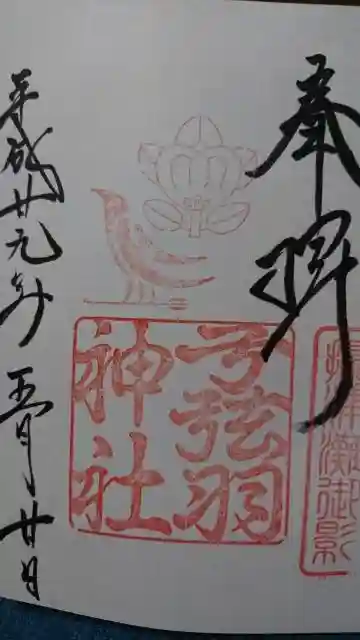 奉拝
摂津灘御影
弓弦羽
神社
平成廿九年五月廿日